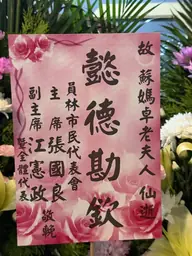 故 蘇媽卓老夫人 仙逝
懿德勘欽
員林市民代表會
主席 張國良
副主席 江憲政
暨全體代表
敬輓